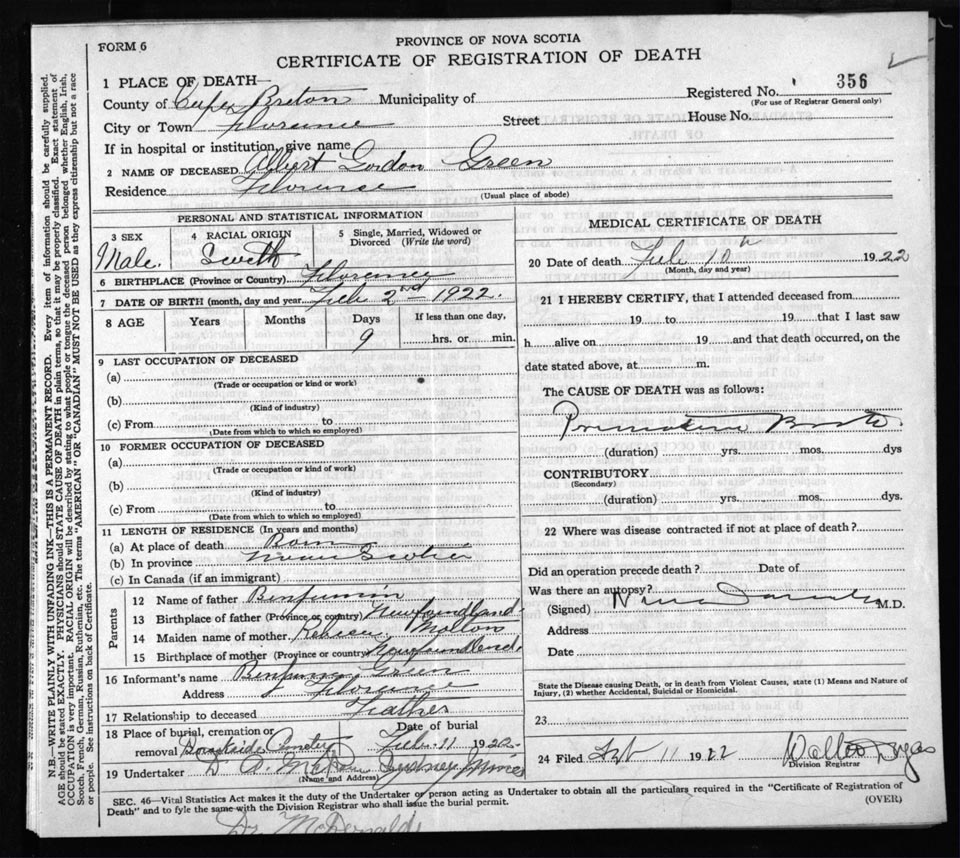 FORM 6
PROVINCE OF NOVA SCOTIA
CERTIFICATE OF REGISTRATION OF DEATH
1 PLACE OF DEATH—
County of Cape Breton Municipality of
Registered No. 356
(For use of Registrar General only)
City or Town Florence Street House No.
If in hospital or institution, give name
2 NAME OF DECEASED Albert Gordon Green
Residence Florence
(Usual place of abode)
PERSONAL AND STATISTICAL INFORMATION
3 SEX
Male.
4 RACIAL ORIGIN
5 Single, Married, Widowed or Divorced (Write the word)
6 BIRTHPLACE (Province or Country) Florence
7 DATE OF BIRTH (month, day and year) Feb 2nd 1922.
8 AGE Years Months Days If less than one day,
9 hrs. or min.
9 LAST OCCUPATION OF DECEASED
(a)
(Trade or occupation or kind or work)
(b)
(Kind of industry)
(c) From to
(Date from which to which so employed)
10 FORMER OCCUPATION OF DECEASED
(a)
(Trade or occupation or kind of work)
(b)
(Kind of industry)
(c) From to
(Date from which to which so employed)
11 LENGTH OF RESIDENCE (In years and months)
(a) At place of death Born
(b) In province Nova Scotia
(c) In Canada (if an immigrant)
Parents
12 Name of father Benjamin
13 Birthplace of father (Province or country) Newfoundland
14 Maiden name of mother
15 Birthplace of mother (Province or country) Newfoundland
16 Informant's name Benjamin Green
Address Florence
17 Relationship to deceased Father
18 Place of burial, cremation or removal Brookside Cemetery
Date of burial Feb 11 1922
19 Undertaker Sydney Mines
(Name and Address)
MEDICAL CERTIFICATE OF DEATH
20 Date of death Feb 10th 1922
(Month, day and year)
21 I HEREBY CERTIFY, that I attended deceased from
19 to 19 that I last saw
h alive on 19 and that death occurred, on the
date stated above, at m.
The CAUSE OF DEATH was as follows:
Premature Birth
(duration) yrs. mos. dys
CONTRIBUTORY
(Secondary)
(duration) yrs. mos. dys.
22 Where was disease contracted if not at place of death?
Did an operation precede death? Date of
Was there an autopsy?
(Signed) M.D.
Address
Date
State the Disease causing Death, or in death from Violent Causes, state (1) Means and Nature of
Injury, (2) whether Accidental, Suicidal or Homicidal.
23
24 Filed Feb 11 1922
Division Registrar
SEC. 46—Vital Statistics Act makes it the duty of the Undertaker or person acting as Undertaker to obtain all the particulars required in the "Certificate of Registration of
Death" and to fyle the same with the Division Registrar who shall issue the burial permit.
(OVER)
Dr McDonald
N.B.—WRITE PLAINLY WITH UNFADING INK—THIS IS A PERMANENT RECORD. Every item of information should be carefully supplied.
AGE should be stated EXACTLY. PHYSICIANS should STATE CAUSE OF DEATH in plain terms, so that it may be properly classified. Exact statement of
OCCUPATION is very important. RACIAL ORIGIN will be described by stating to what people or tongue the deceased person belonged whether English, Irish,
Scotch, French, German, Russian, Ruthenian, etc. The terms "AMERICAN" OR "CANADIAN" MUST NOT BE USED as they express citizenship but not a race
or people. See instructions on back of Certificate.